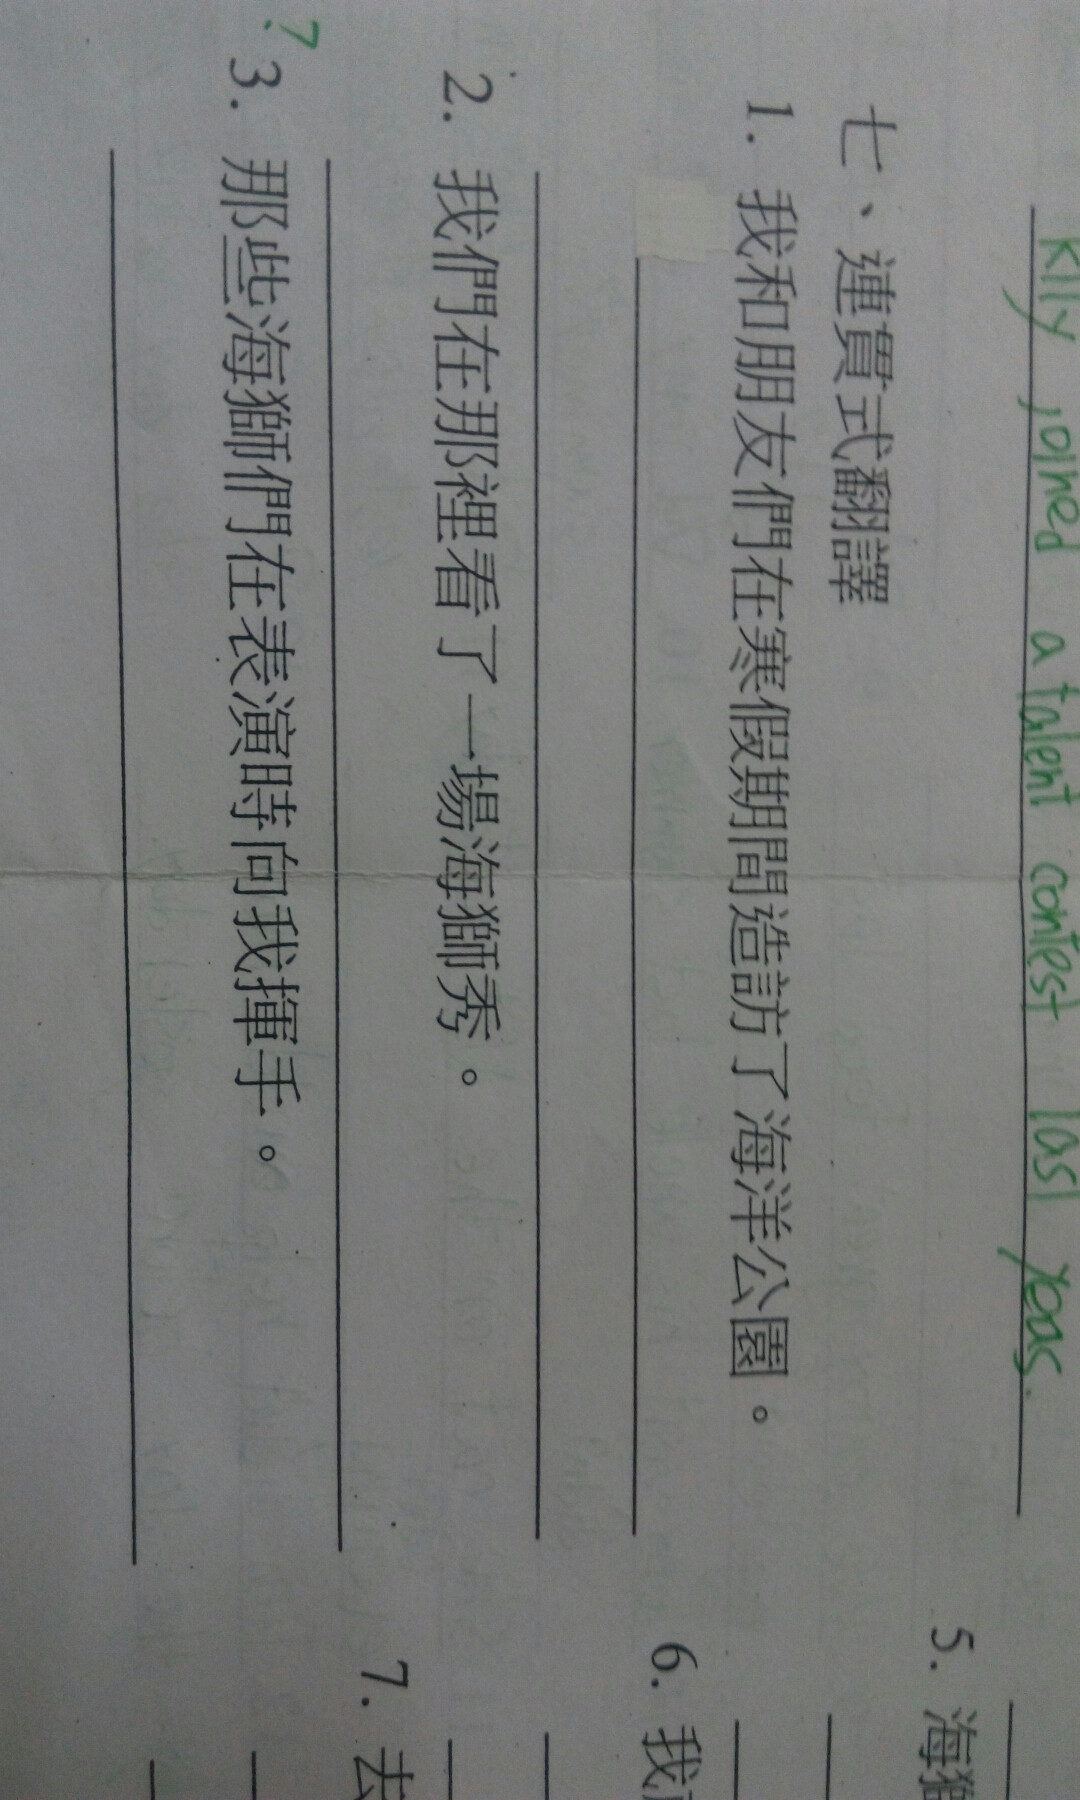 Klly joined a talent contest last yeas.
七、連貫式翻譯
1. 我和朋友們在寒假期間造訪了海洋公園。
2. 我們在那裡看了一場海獅秀。
7
3. 那些海獅們在表演時向我揮手。
5. 海獅
6. 我
7. 去